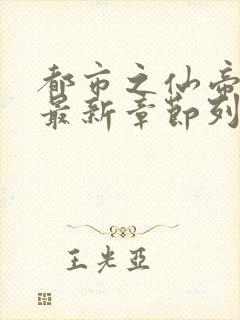 都市之仙帝
最新章節列
王光亞